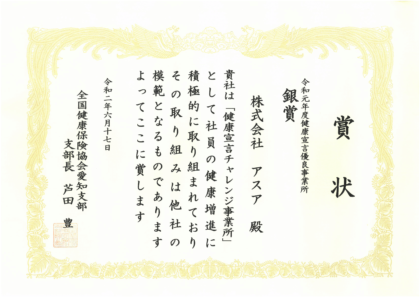 賞状
令和元年度健康宣言優良事業所
銀賞
株式会社 アスア 殿
貴社は「健康宣言チャレンジ事業所」
として社員の健康増進に
積極的に取り組まれており
その取り組みは他社の
模範となるものであります
よってここに賞します
令和二年六月十七日
全国健康保険協会愛知支部
支部長 芦田 豊